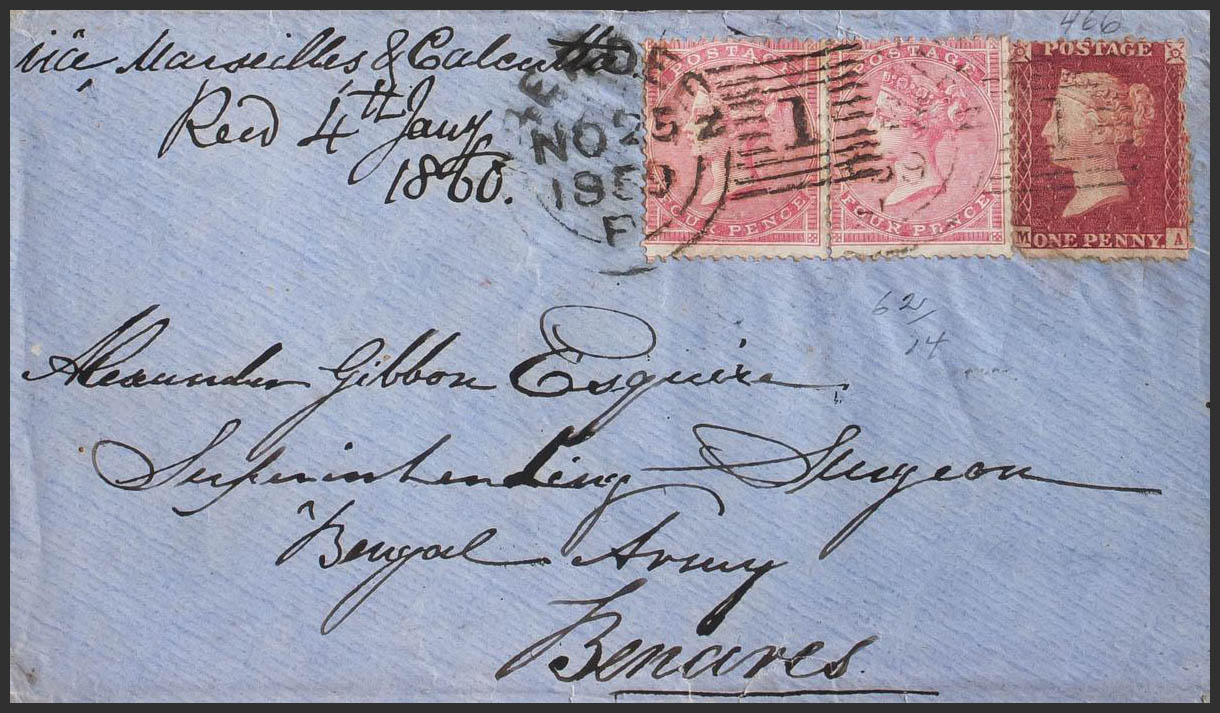 466
via Marseilles & Calcutta.
Recd 4th Jany
1860.
NO 25
1859
F
1
POSTAGE
FOUR PENCE
POSTAGE
FOUR PENCE
POSTAGE
M ONE PENNY A
62/14
Alexander Gibbon Esquire
Superintending Surgeon
Bengal Army
Benares